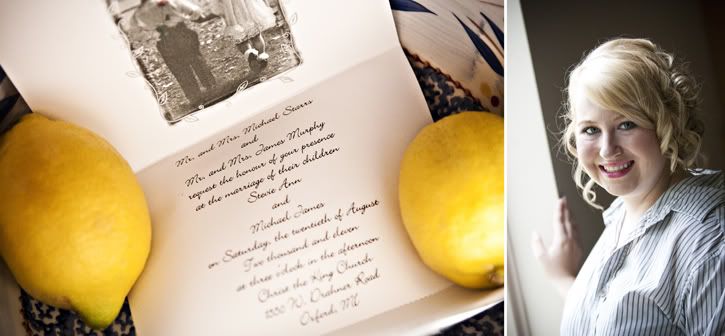 Mr. and Mrs. Michael Starrs
and
Mr. and Mrs. James Murphy
request the honour of your presence
at the marriage of their children
Stevie Ann
and
Michael James
on Saturday, the twentieth of August
Two thousand and eleven
at three o'clock in the afternoon
Christ the King Church
1550 W. Drahner Road
Oxford, MI